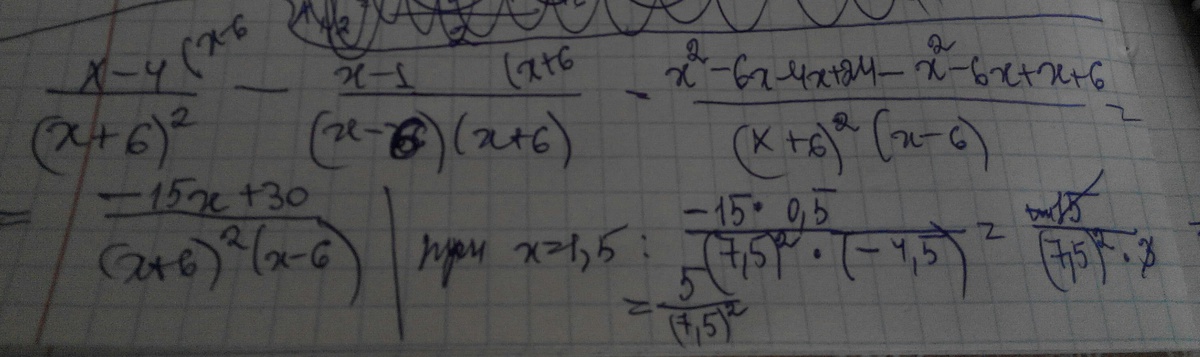 x-4 (x-6 / (x+6)² - x-1 (x+6 / (x-6)(x+6) = x²-6x-4x+24-x²-6x+x+6 / (x+6)²(x-6) =
= -15x+30 / (x+6)²(x-6) | при x=1,5: -15·0,5 / (7,5)²·(-4,5) = 15 / (7,5)²·3 =
= 5 / (7,5)²